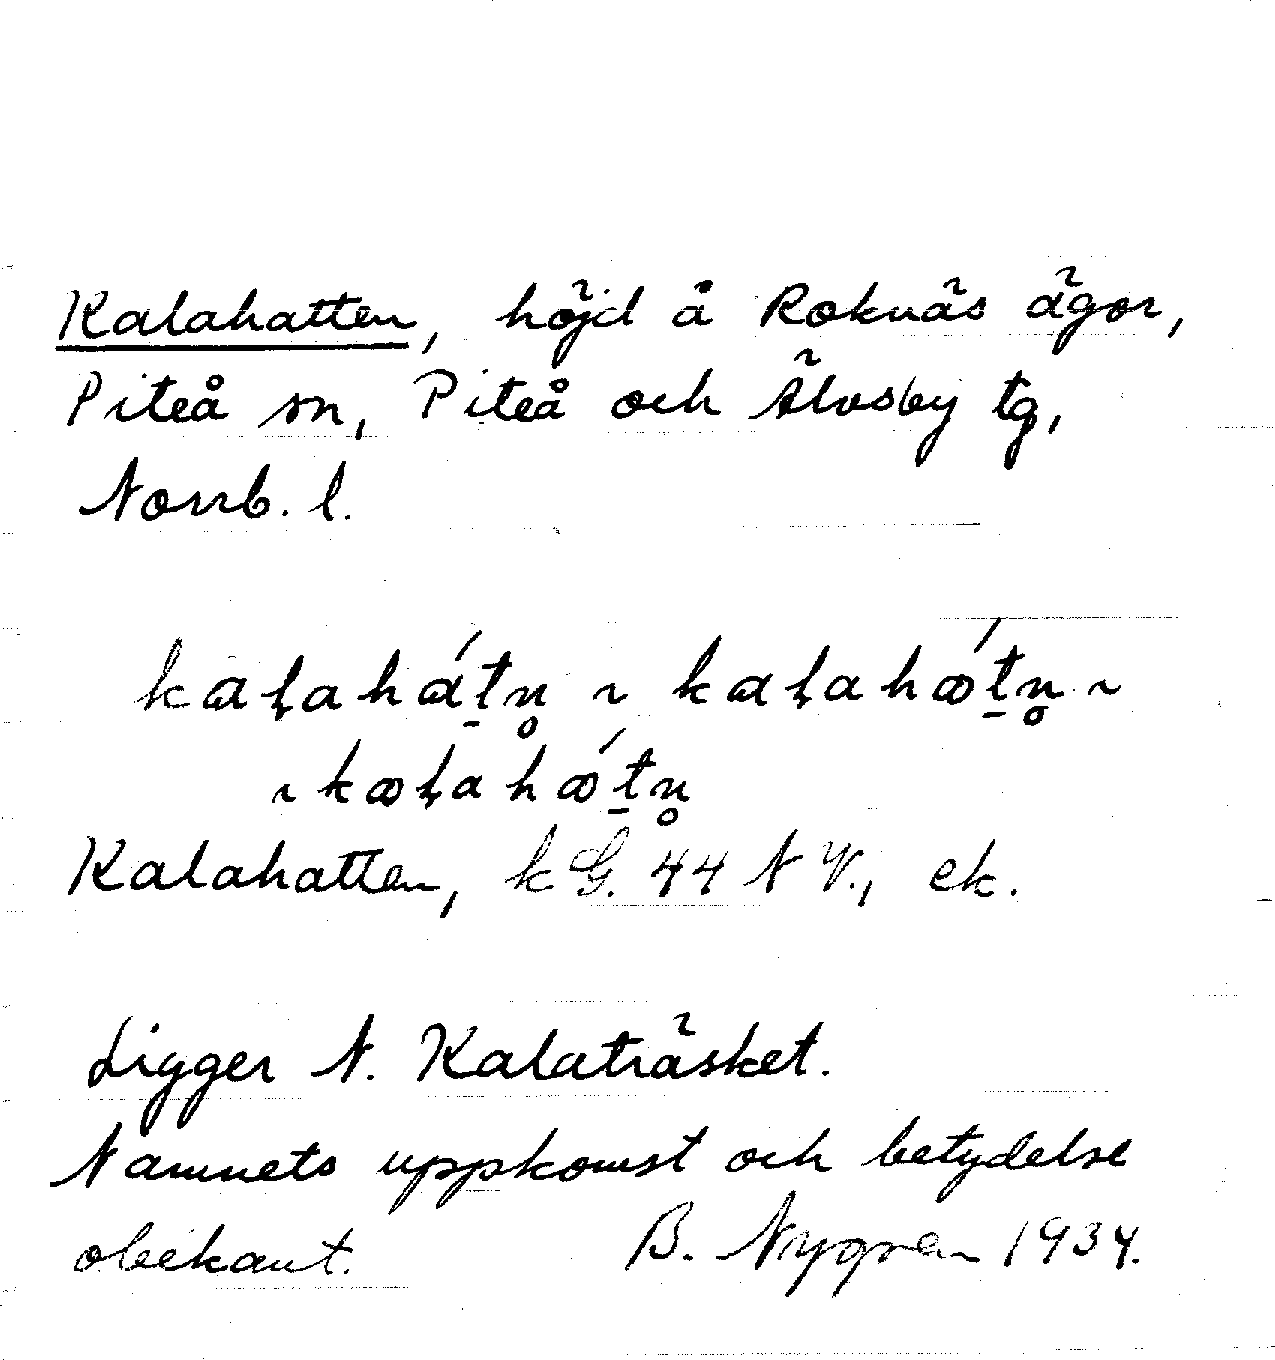 Kalahatten, höjd å Roknäs ägor,
Piteå sn, Piteå och Älvsby tg,
Norrb. l.
kaḷahát̠n̥ ~ kaḷahœ́t̠n̥ ~
~ kœḷahœ́t̠n̥
Kalahatten, kG. 44 NV., ek.
Ligger N. Kalaträsket.
Namnets uppkomst och betydelse
obekant. B. Nygren 1934.